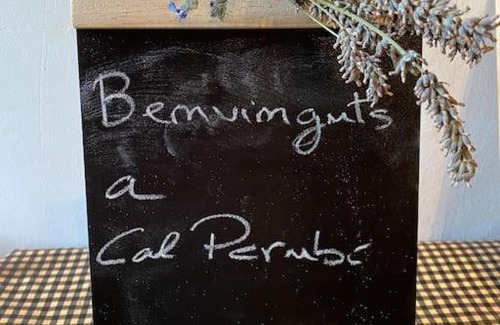 Benvinguts
a
Cal Perubí